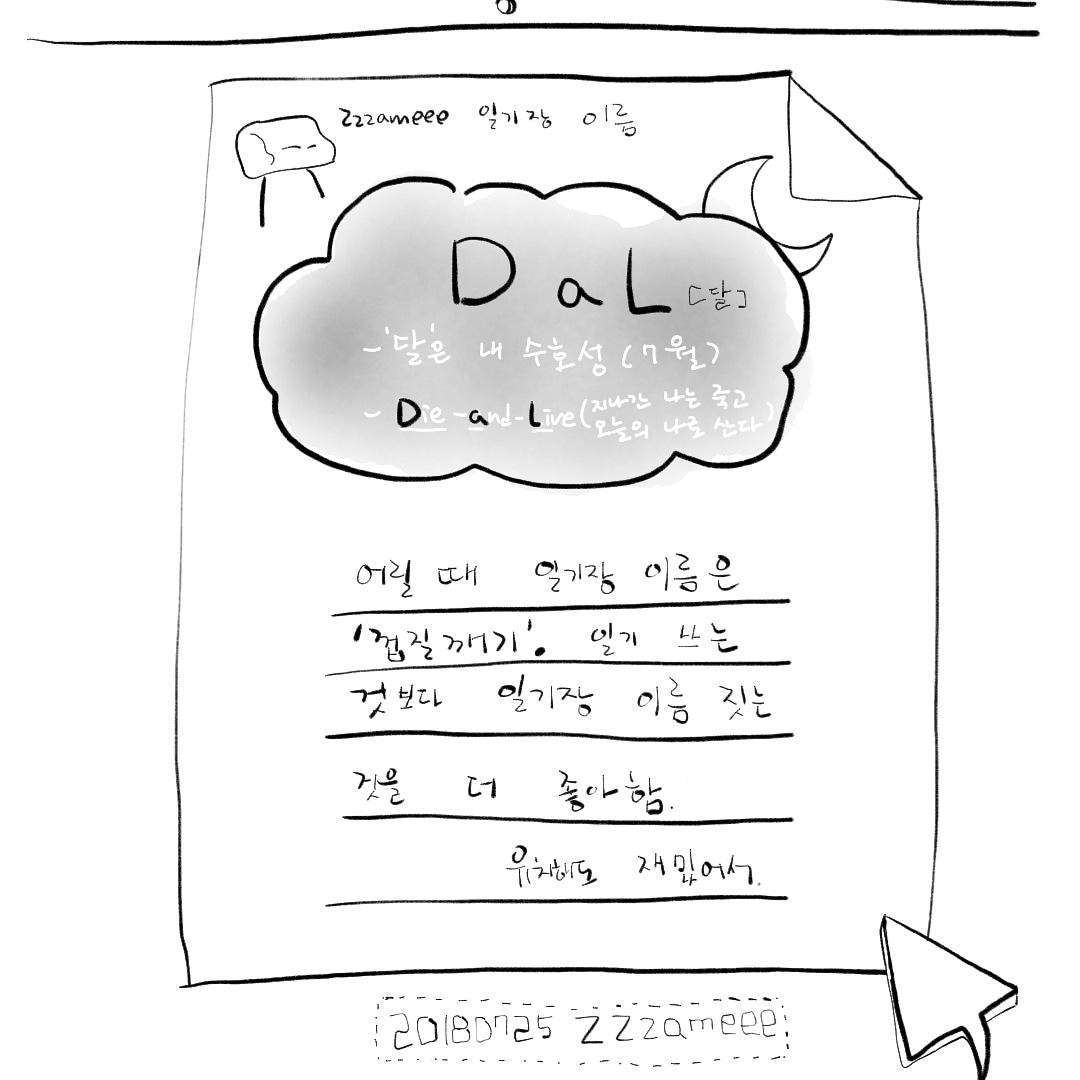 Zzzameee 일기장 이름
DaL [달]
- '달'은 내 수호성 (7월)
- Die-and-Live (지나간 나는 죽고
오늘의 나로 산다)
어릴 때 일기장 이름은
'껍질깨기'. 일기 쓰는
것보다 일기장 이름 짓는
것을 더 좋아함.
유치해도 재밌어서.
20180725 ZZzameee